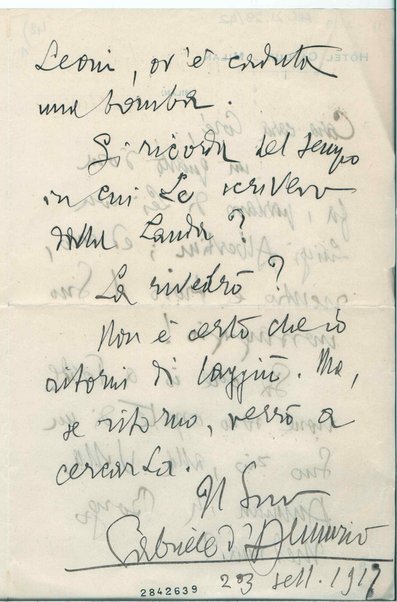 Leoni, ov'è caduta
una bomba.
Si ricorda del tempo
in cui Le scrivevo
dalla Landa?
La rivedrò?
Non è certo che io
ritorni di laggiù. Ma,
se ritorno, verrò a
cercarLa.
Il Suo
Gabriele d'Annunzio
23 sett. 1917
2842639